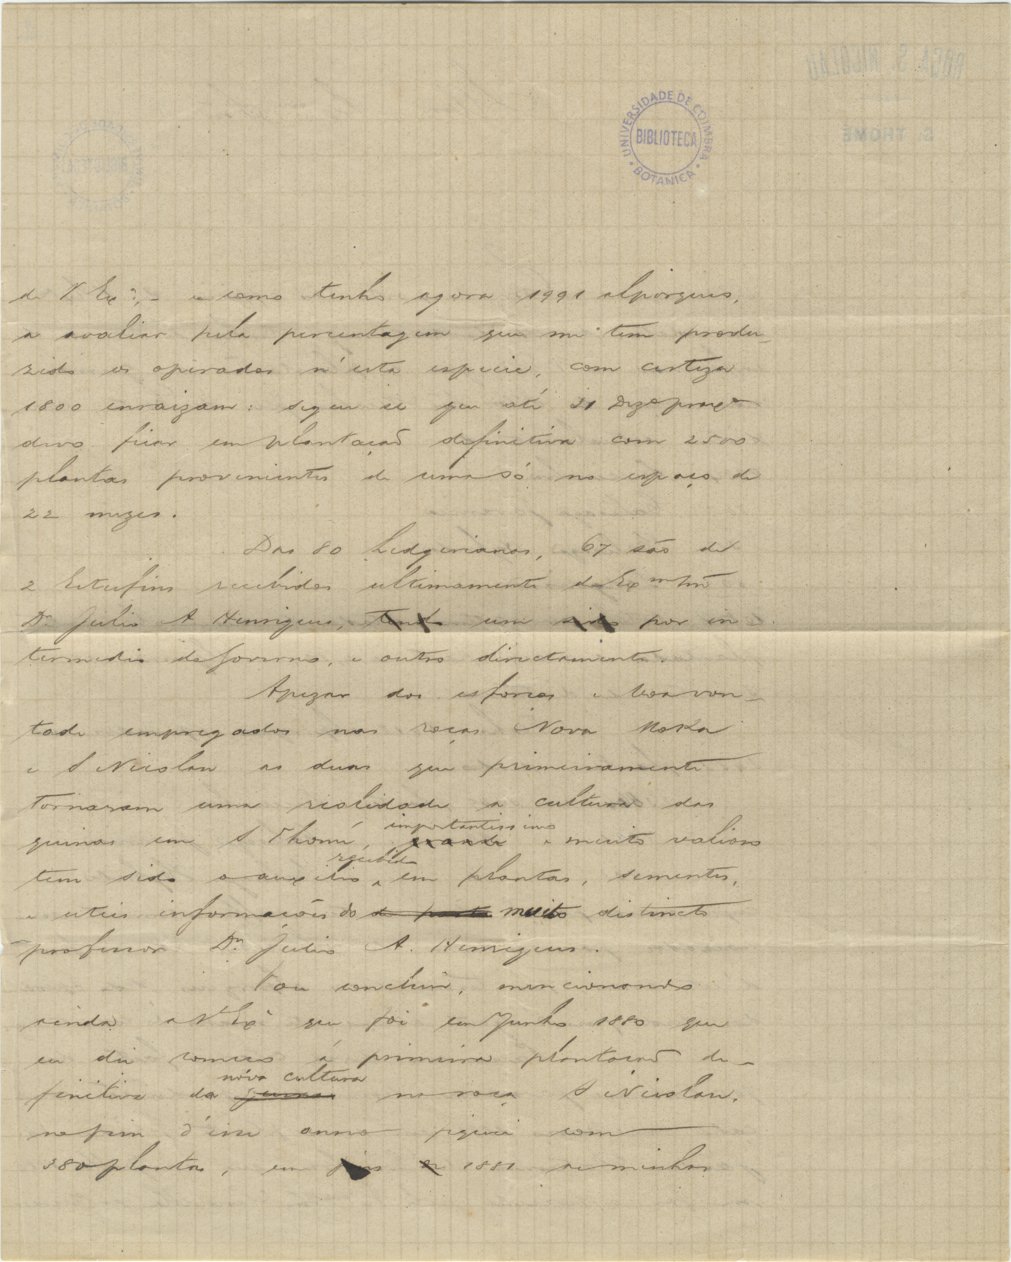 UNIVERSIDADE DE COIMBRA
BIBLIOTECA
BOTANICA
de V Exª, – e como tenho agora 1991 alporques,
a avaliar pela percentagem que me tem produ
zido os operados n'esta especie, com certeza
1800 enraizam: segue se que até 31 Dezº proxº
devo ficar em plantação definitiva com 2500
plantas provenientes de uma só no espaço de
22 mezes.
Das 80 Ledgerianas, 67 são de
2 Estufins recebidos ultimamente do Exmo Snr
Dr Julio A Henriques, um por in
termedio do governo, e outro directamente.
Apezar dos esforços e boa von
tade empregados nas roças Nova Moka
e S Nicolau as duas que primeiramente
tornaram uma realidade a cultura das
quinas em S Thomé, importantissimo
grande e muito valioso
recebido
tem sido o auxilio em plantas, sementes,
e uteis informações do muito distincto
professor Dr Julio A. Henriques.
Vou concluir, mencionando
ainda a V Exª que foi em Junho 1880 que
eu dei começo á primeira plantação de
nóva cultura
finitiva da na roça S Nicolau.
no fim d'esse anno fiquei com
380 plantas, em 1881 as minhas